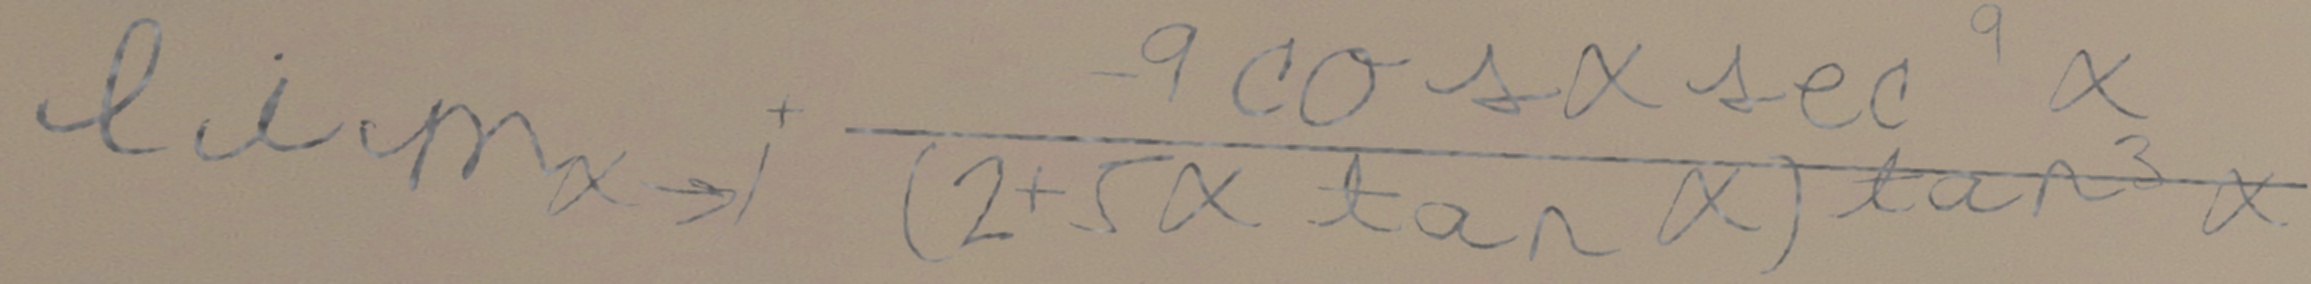 \lim_{x \to 1^+} \frac{-9 \cos x \sec^9 x}{(2+5x \tan x) \tan^3 x}